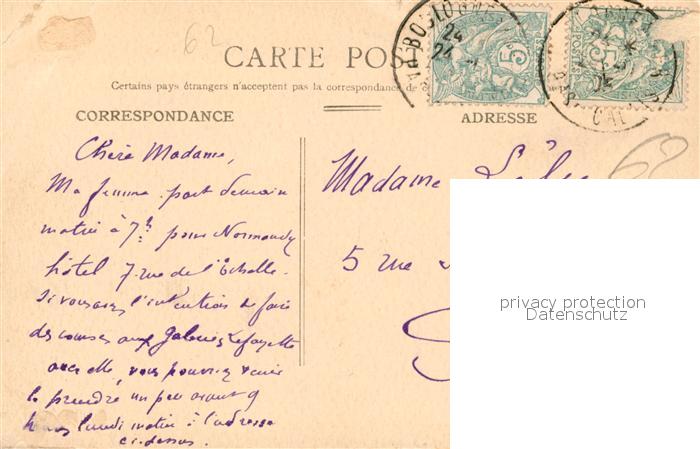 62
CARTE POST
Certains pays étrangers n'acceptent pas la correspondance de c
CORRESPONDANCE
ADRESSE
BOULOGNE
24
5c
CAL
62
Chère Madame,
Ma femme part demain
matin à 7h pour Normandy
hôtel 7. rue de l'Echelle.
Si vous avez l'intention de faire
des courses aux Galeries Lafayette
avec elle, vous pourriez venir
la prendre un peu avant 9
heures lundi matin à l'adresse
ci-dessus.
Madame
5 rue
privacy protection
Datenschutz